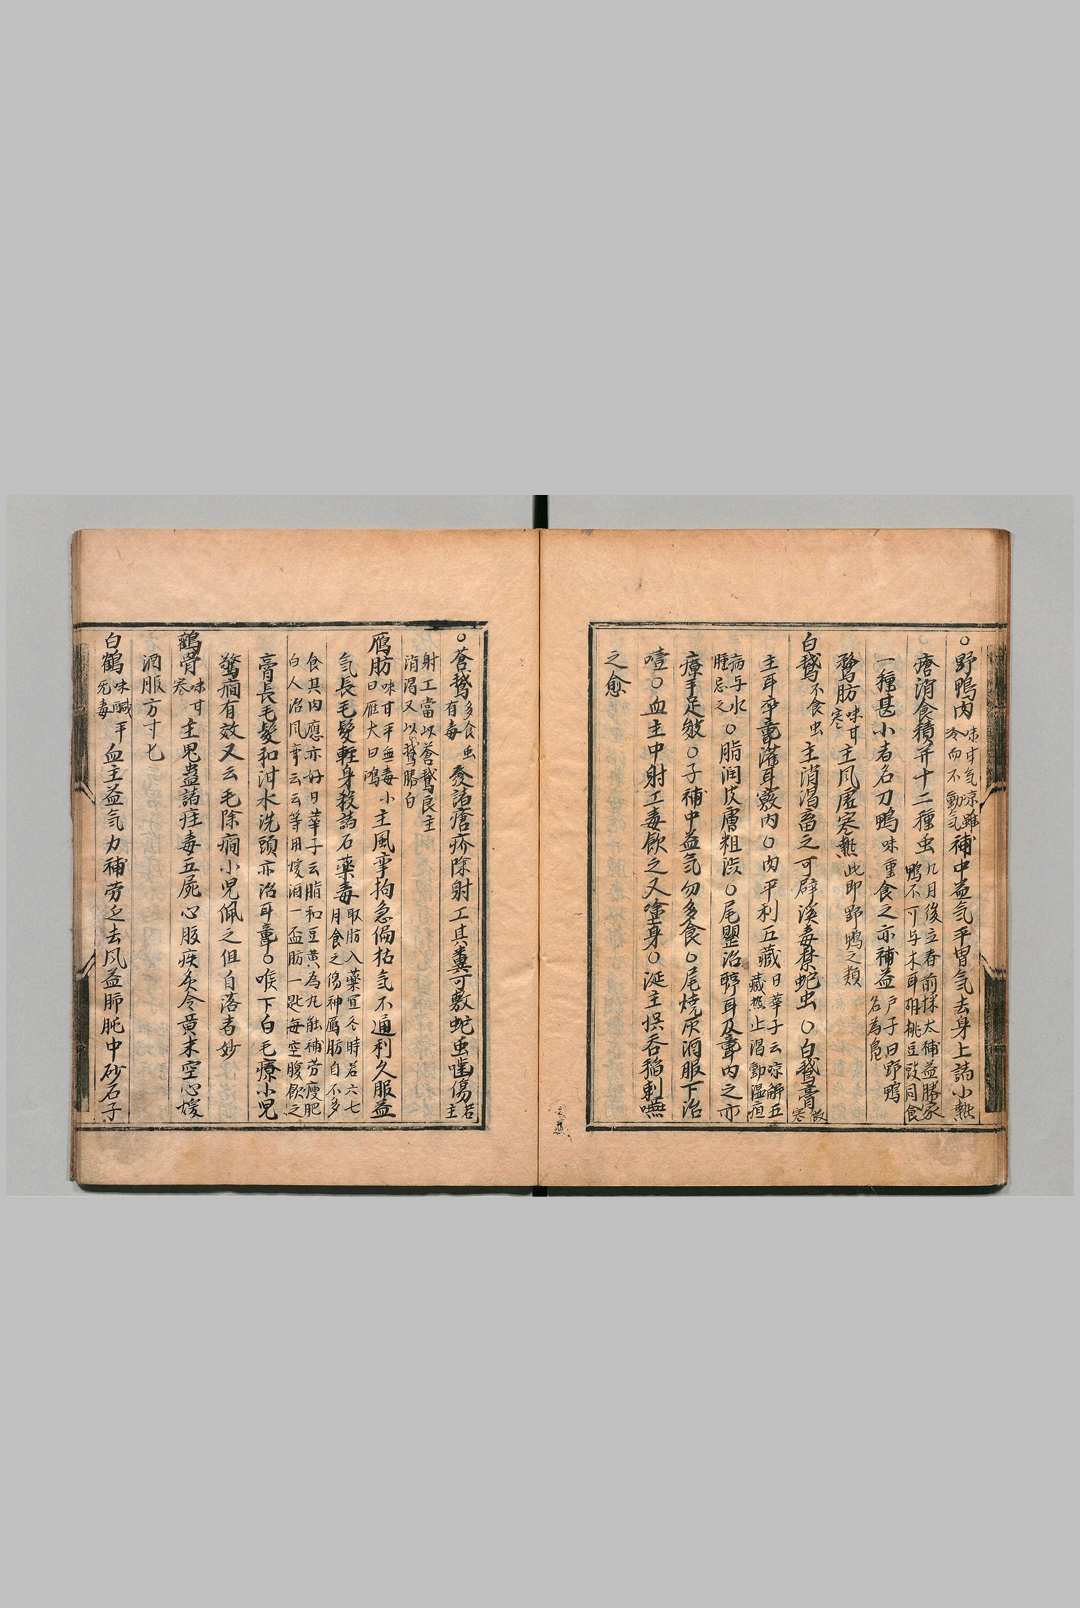 ○野鴨肉味甘气凉雖冷而不動气補中益气平胃气去身上諸小熱
瘡消食積并十二種虫九月後立春前採大補益勝家鴨不可与木耳胡桃豆豉同食
一種甚小者名刀鴨味重食之亦補益尸子曰野鴨名為鳧
鶩肪味甘寒主風虛寒熱此即野鴨之類
白鵝不食虫主消渴畜之可辟溪毒禁蛇虫○白鵝膏微寒
主耳卒聾灌耳歠內○肉平利五藏日華子云凉解五藏熱止渴動濕疸
病与水腫忌之○脂潤皮膚粗澁○尾罌治聤耳及聾內之亦
療手足皴○子補中益气勿多食○尾燒灰酒服下治
噎○血主中射工毒飲之又塗身○涎主悞呑稻刺嚥
之愈
○蒼鵝多食虫有毒發諸瘡疥除射工其糞可敷蛇虫嚙傷若主
射工當以蒼鵝良主消渴又以鵝勝白
鴈肪味甘平無毒小曰鴈大曰鴻主風孿拘急偏枯气不通利久服益
气長毛髮輕身殺諸石藥毒取肪入藥宜冬時若六七月食之傷神鴈肪自不多
食其肉應亦好日華子云脂和豆黃為丸能補劳瘦肥白人治風孿云云等用煖酒一盃肪一匙每空腹飲之
膏長毛髮和泔水洗頭亦治耳聾○喉下白毛療小兒
驚癇有效又云毛除癇小兒佩之但自落者妙
鸛骨味甘寒主鬼蠱諸疰毒五屍心腹疾炙令黃末空心煖
酒服方寸匕
白鶴味醎平无毒血主益气力補劳乏去風益肺肫中砂石子